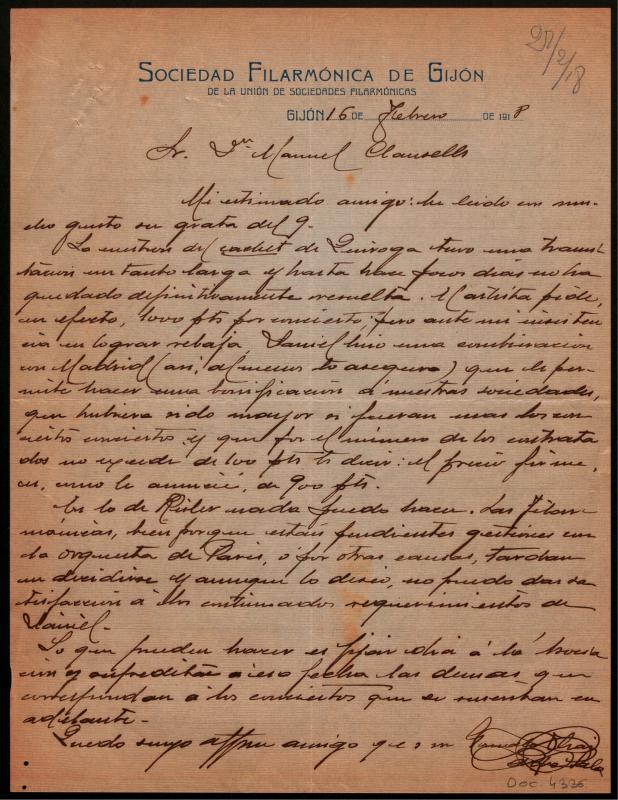 27/2/18
SOCIEDAD FILARMÓNICA DE GIJÓN
DE LA UNIÓN DE SOCIEDADES FILARMÓNICAS
GIJÓN 16 DE Febrero DE 1918
Sr. Dn Manuel Clausells
Mi estimado amigo: he leido con mu-
cho gusto su grata del 9.
La cuestion del cachet de Quiroga tuvo una trami-
tacion un tanto larga y hasta hace pocos dias no ha
quedado definitivamente resuelta. El artista pide,
en efecto, 1000 pts por concierto; pero ante mi insisten
cia en lograr rebaja Daniel hizo una combinacion
con Madrid (asi, al menos lo asegura) que le per-
mite hacer una bonificacion á nuestras sociedades,
que hubiera sido mayor si fueran mas los con
ciertos y que por el número de los contrata
dos no excede de 100 pts. Es decir: el precio firme,
es, como le anuncié, de 900 pts.
En lo de Risler nada puedo hacer. Las Filar-
mónicas, bien porque estan pendientes gestiones con
la orquesta de Paris, ó por otras causas, tardan
en decidirse y aunque lo deseo, no puedo dar sa
tisfacción á los continuados requerimientos de
Daniel.
Lo que pueden hacer es fijar dia á la
cion y á esa fecha las demas, que
correspondan á los conciertos que se en
adelante.
Quedo suyo affmo amigo q e s m
Doc. 4336